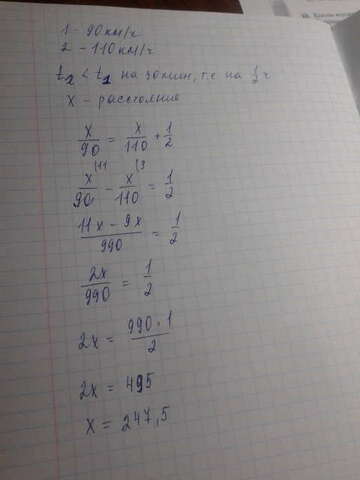 1 - 90 км/ч
2 - 110 км/ч
t₂ < t₁ на 30 мин, т.е на 1/2 ч
x - расстояние
x/90 = x/110 + 1/2
x/90 |11 - x/110 |3 = 1/2
11x - 9x / 990 = 1/2
2x/990 = 1/2
2x = 990 · 1 / 2
2x = 495
x = 247,5